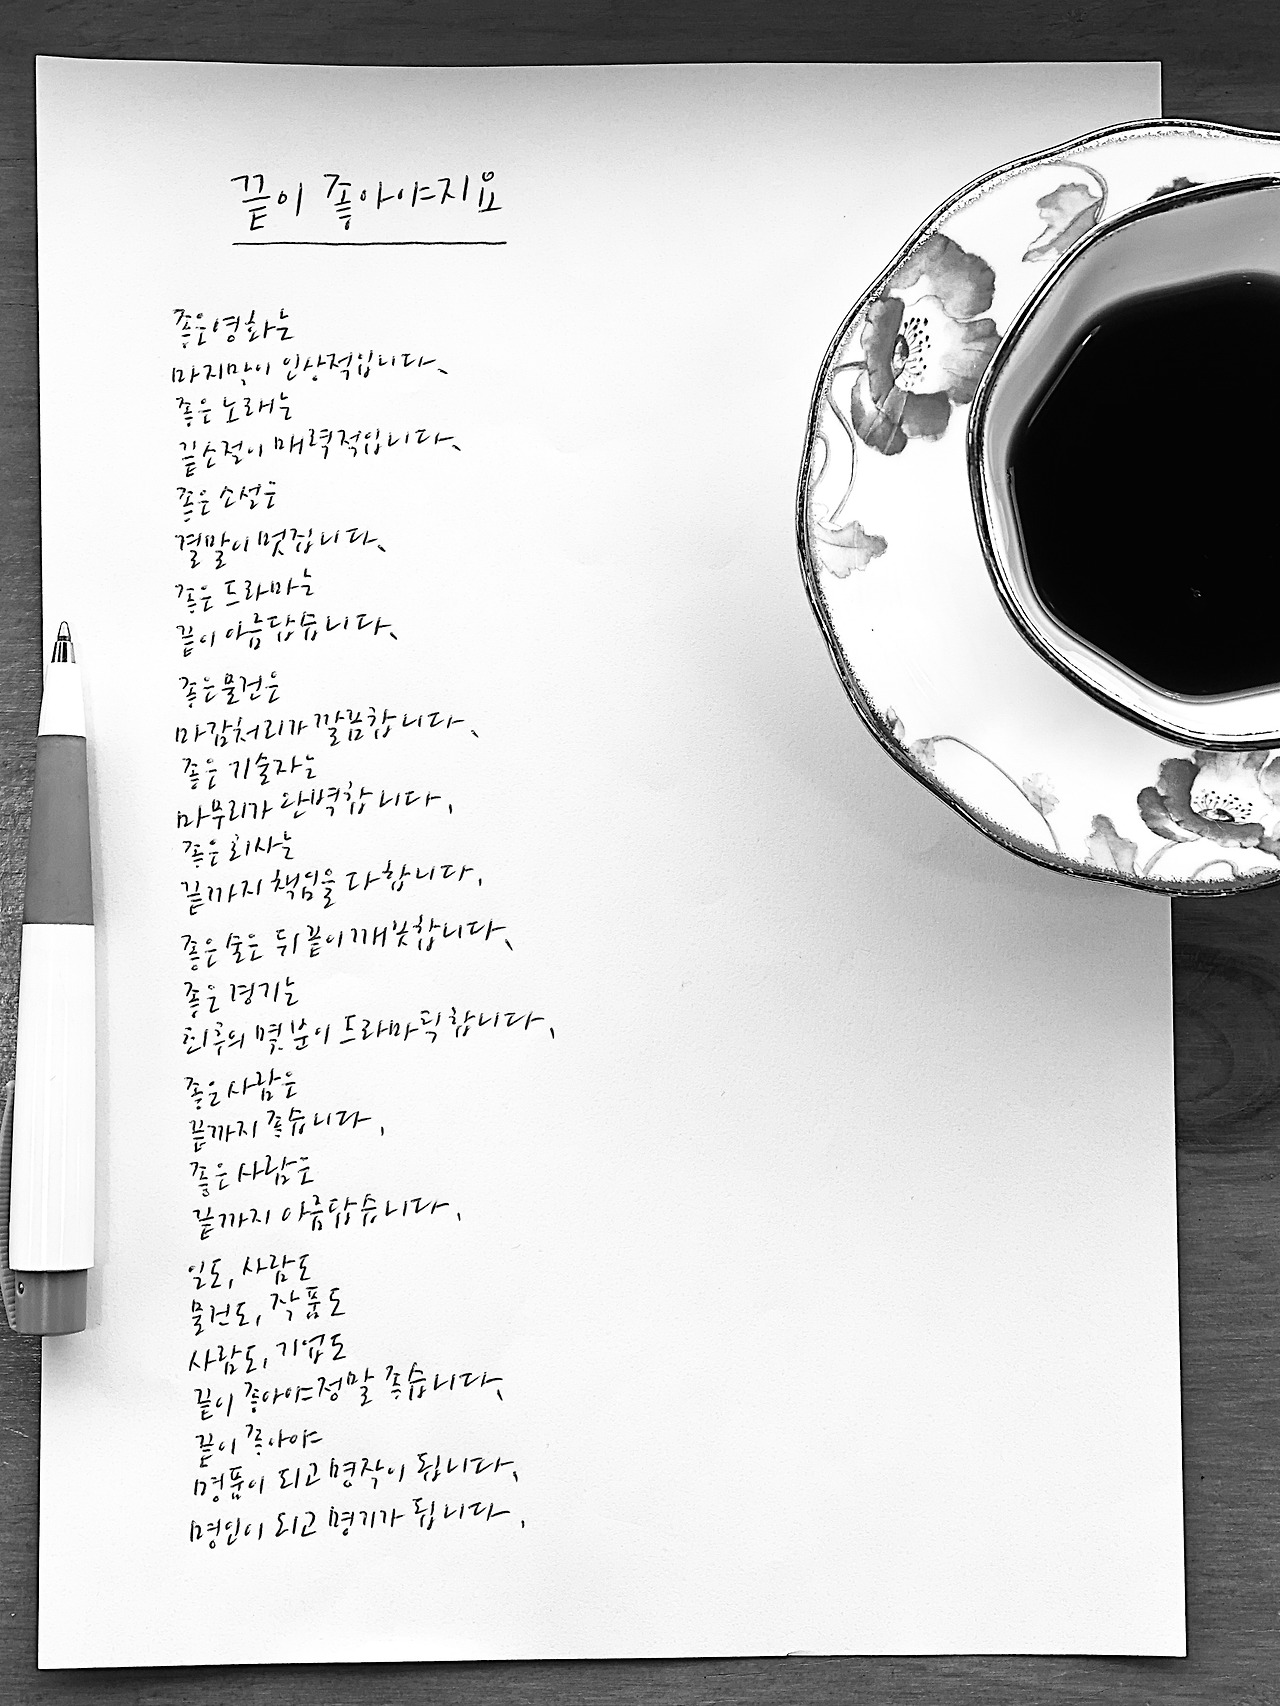 끝이 좋아야지요
좋은 영화는
마지막이 인상적입니다.
좋은 노래는
끝소절이 매력적입니다.
좋은 소설은
결말이 멋집니다.
좋은 드라마는
끝이 아름답습니다.
좋은 물건은
마감처리가 깔끔합니다.
좋은 기술자는
마무리가 완벽합니다.
좋은 회사는
끝까지 책임을 다합니다.
좋은 술은 뒤끝이 깨끗합니다.
좋은 경기는
최후의 몇 분이 드라마틱합니다.
좋은 사람은
끝까지 좋습니다.
좋은 사람은
끝까지 아름답습니다.
일도, 사람도
물건도, 작품도
사람도, 기업도
끝이 좋아야 정말 좋습니다.
끝이 좋아야
명품이 되고 명작이 됩니다.
명인이 되고 명기가 됩니다.